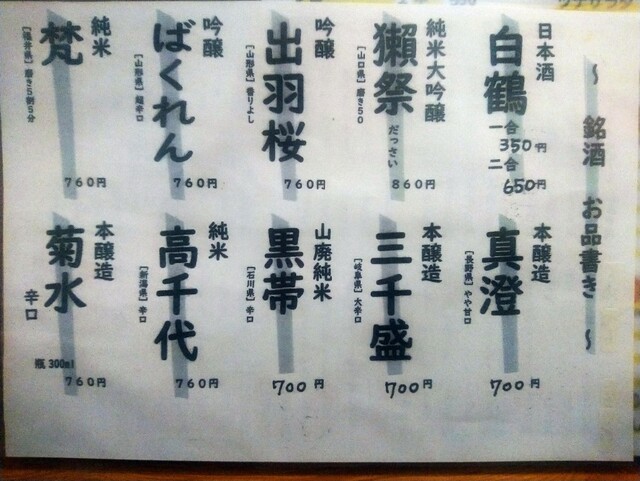 ～ 銘酒 お品書き ～
日本酒
白鶴
一合
350円
二合
650円
純米大吟醸
獺祭
だっさい
[山口県] 磨き50
860円
吟醸
出羽桜
[山形県] 香りよし
760円
吟醸
ばくれん
[山形県] 超辛口
760円
純米
梵
[福井県] 磨き5割5分
760円
本醸造
真澄
[長野県] やや甘口
700円
本醸造
三千盛
[岐阜県] 大辛口
700円
山廃純米
黒帯
[石川県] 辛口
700円
純米
高千代
[新潟県] 辛口
760円
本醸造
菊水
辛口
瓶 300ml
760円